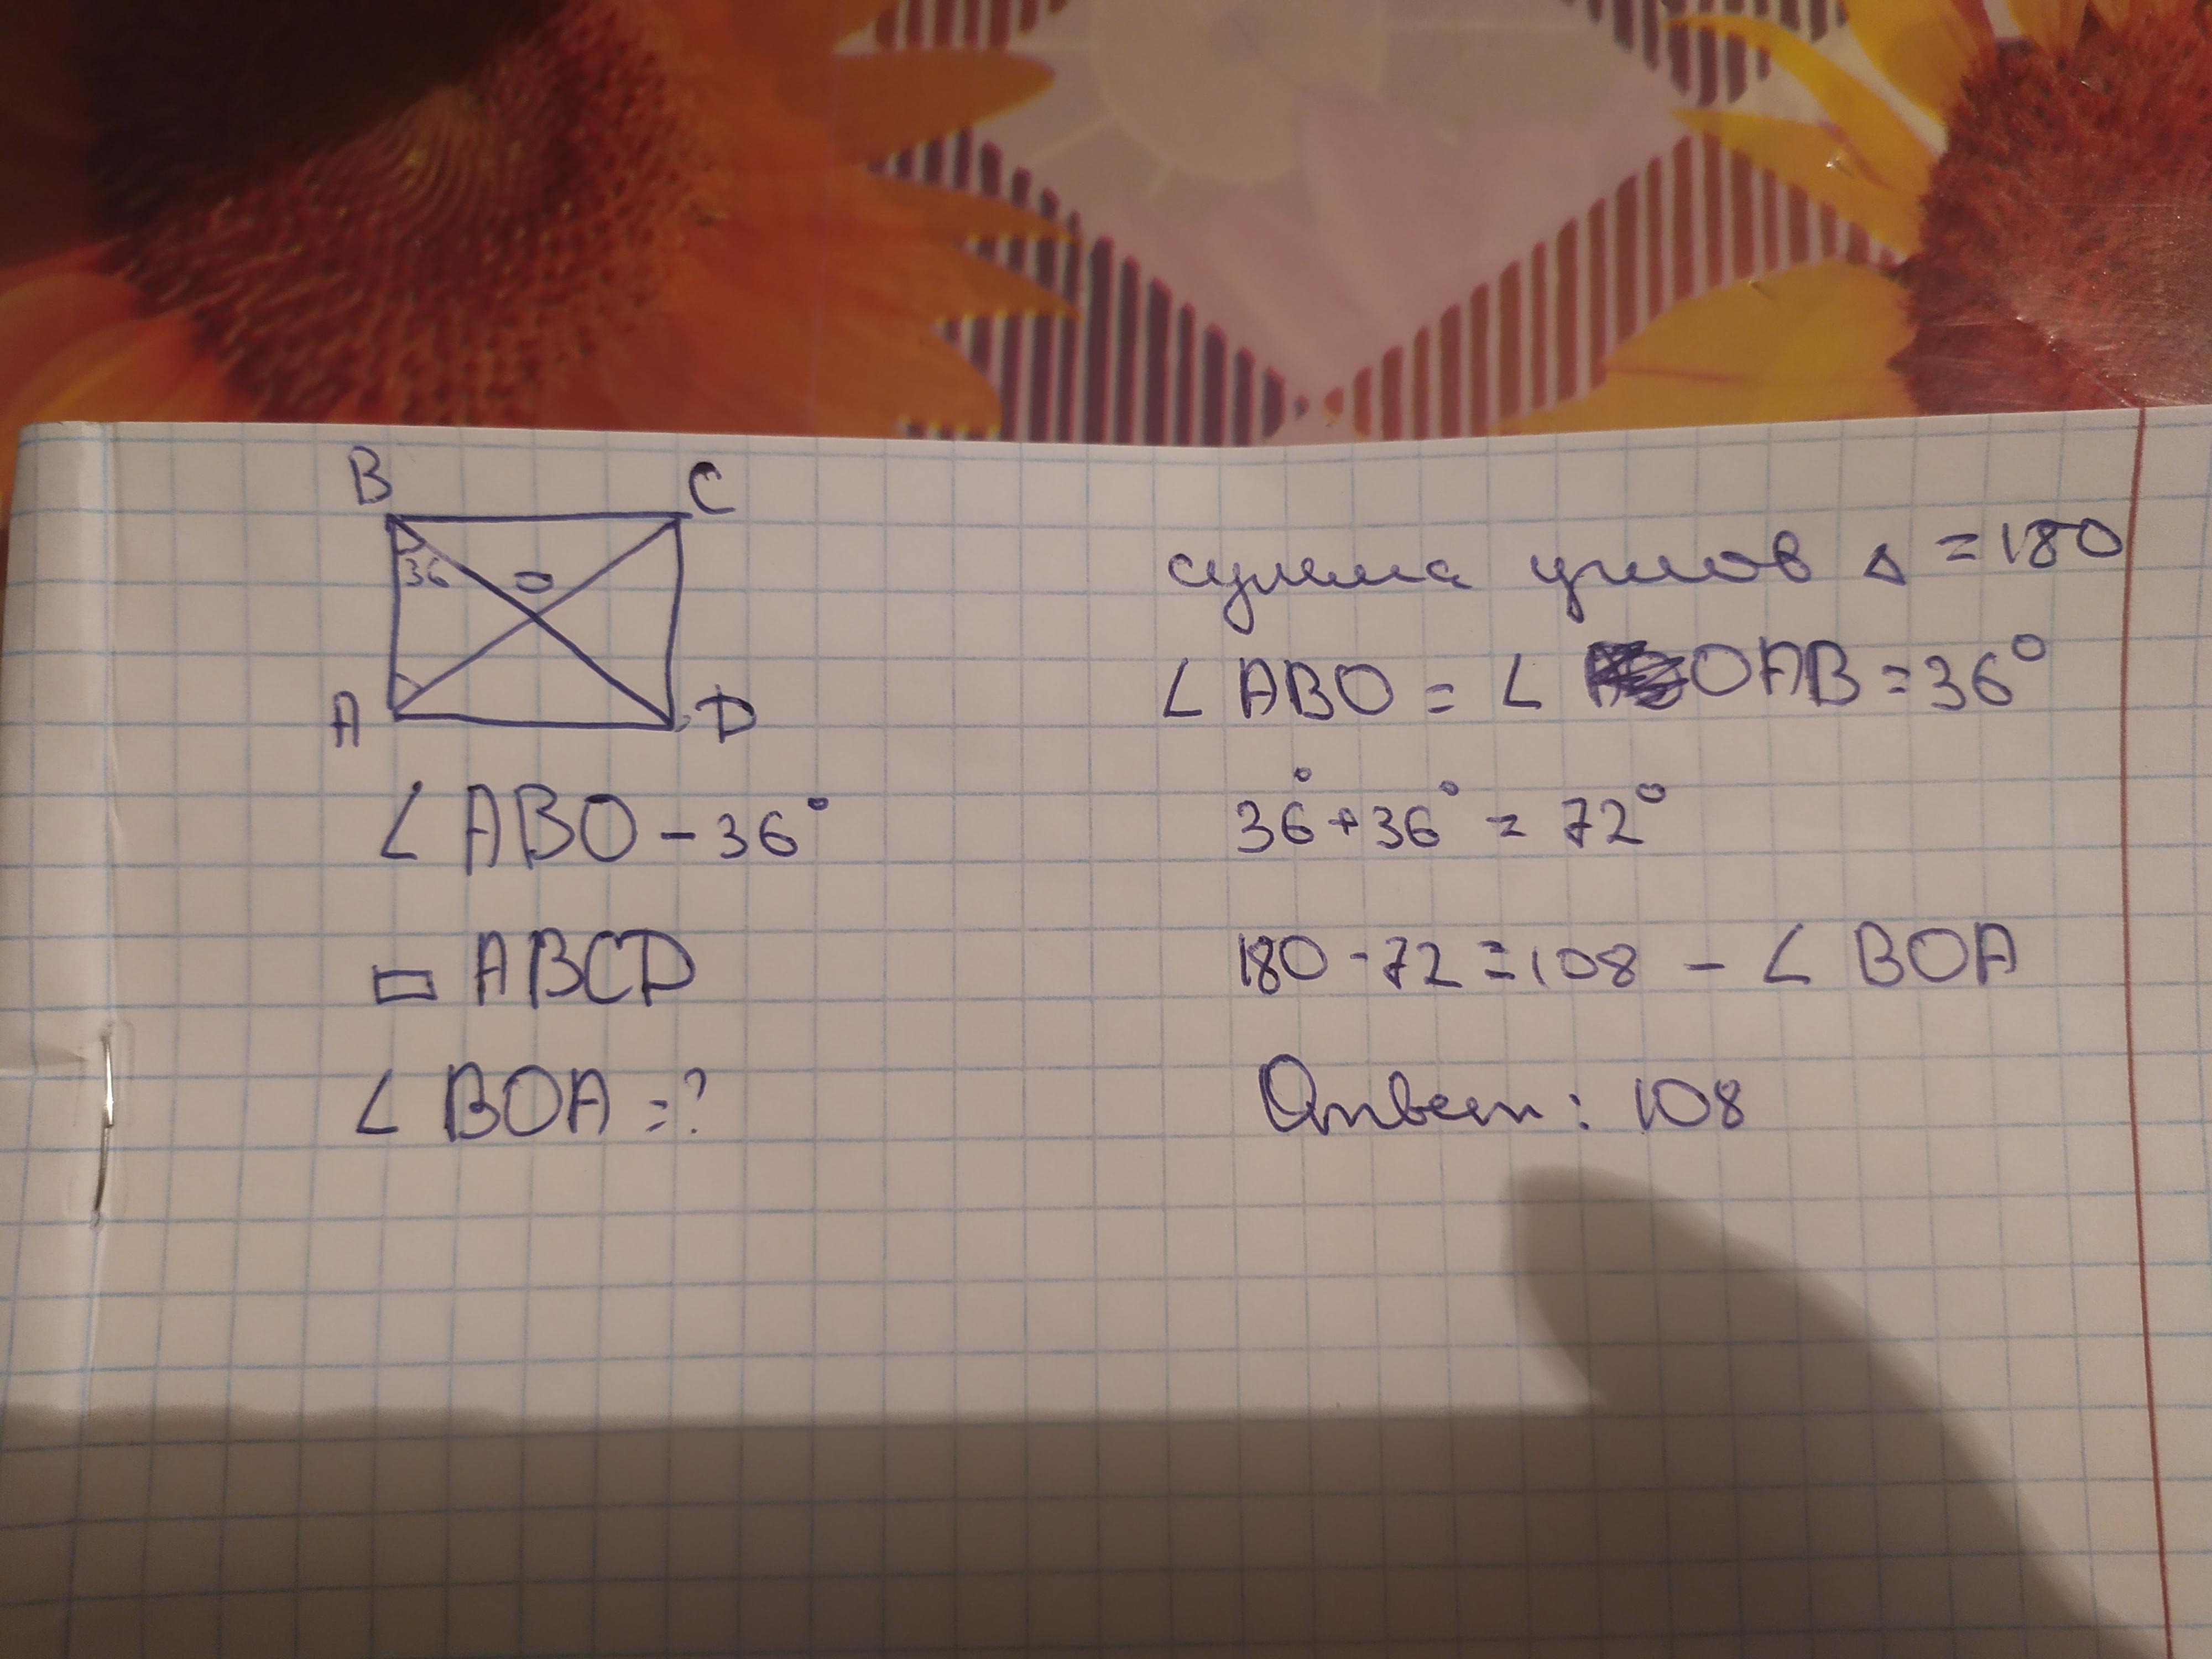 B C
36 O
A D
∠ ABO - 36°
▭ ABCD
∠ BOA = ?
сумма углов Δ = 180
∠ ABO = ∠ OAB = 36°
36° + 36° = 72°
180 - 72 = 108 - ∠ BOA
Ответ: 108